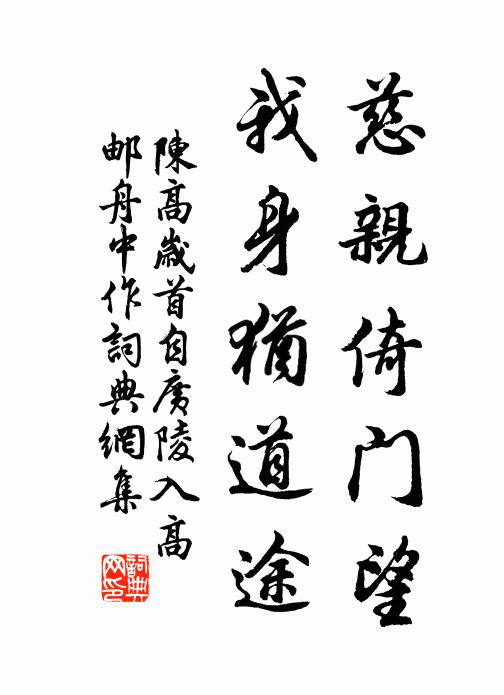 慈親倚门望
我身猶道途
陳高歲首自廣陵入高
邮舟中作詞典網集
詞典网印